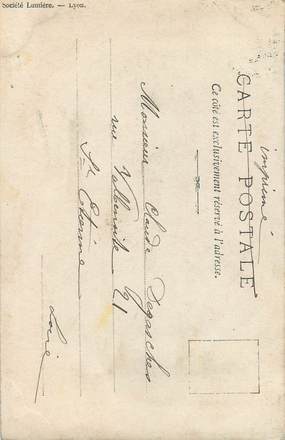 Société Lumière. — Lyon.
imprimé
CARTE POSTALE
Ce côté est exclusivement réservé à l'adresse.
Monsieur Claude
rue 91
St Etienne
Loire